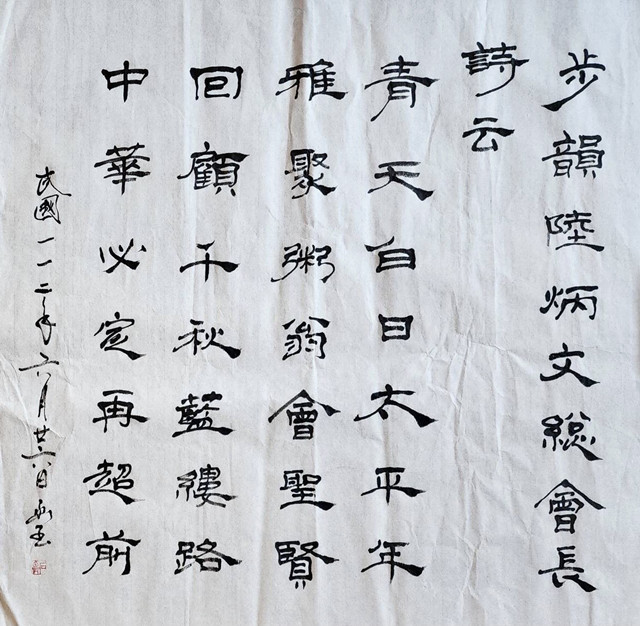 步韻陸炳文總會長
詩云
青天白日太平年
雅聚粥翁會聖賢
回顧千秋藍縷路
中華必定再超前
民國一一二年六月廿六日